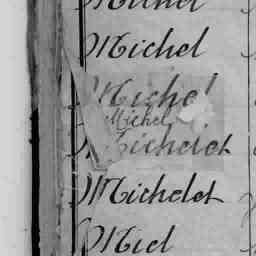 Michel
Michel
Michel
Michel
Michelet
Michelet
Miel